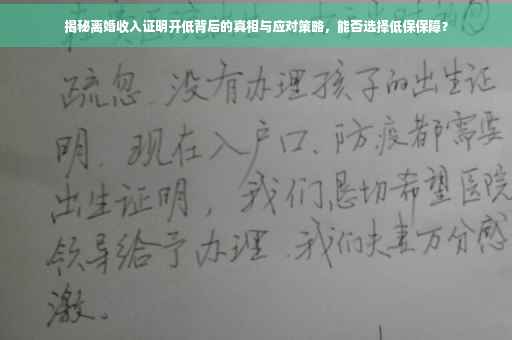 揭秘离婚收入证明开低背后的真相与应对策略，能否选择低保保障？
疏忽、没有办理孩子的出生证
明、现在入户口、防疫都需要
出生证明，我们恳切希望医院
领导给予办理、我们夫妻万分感
激。